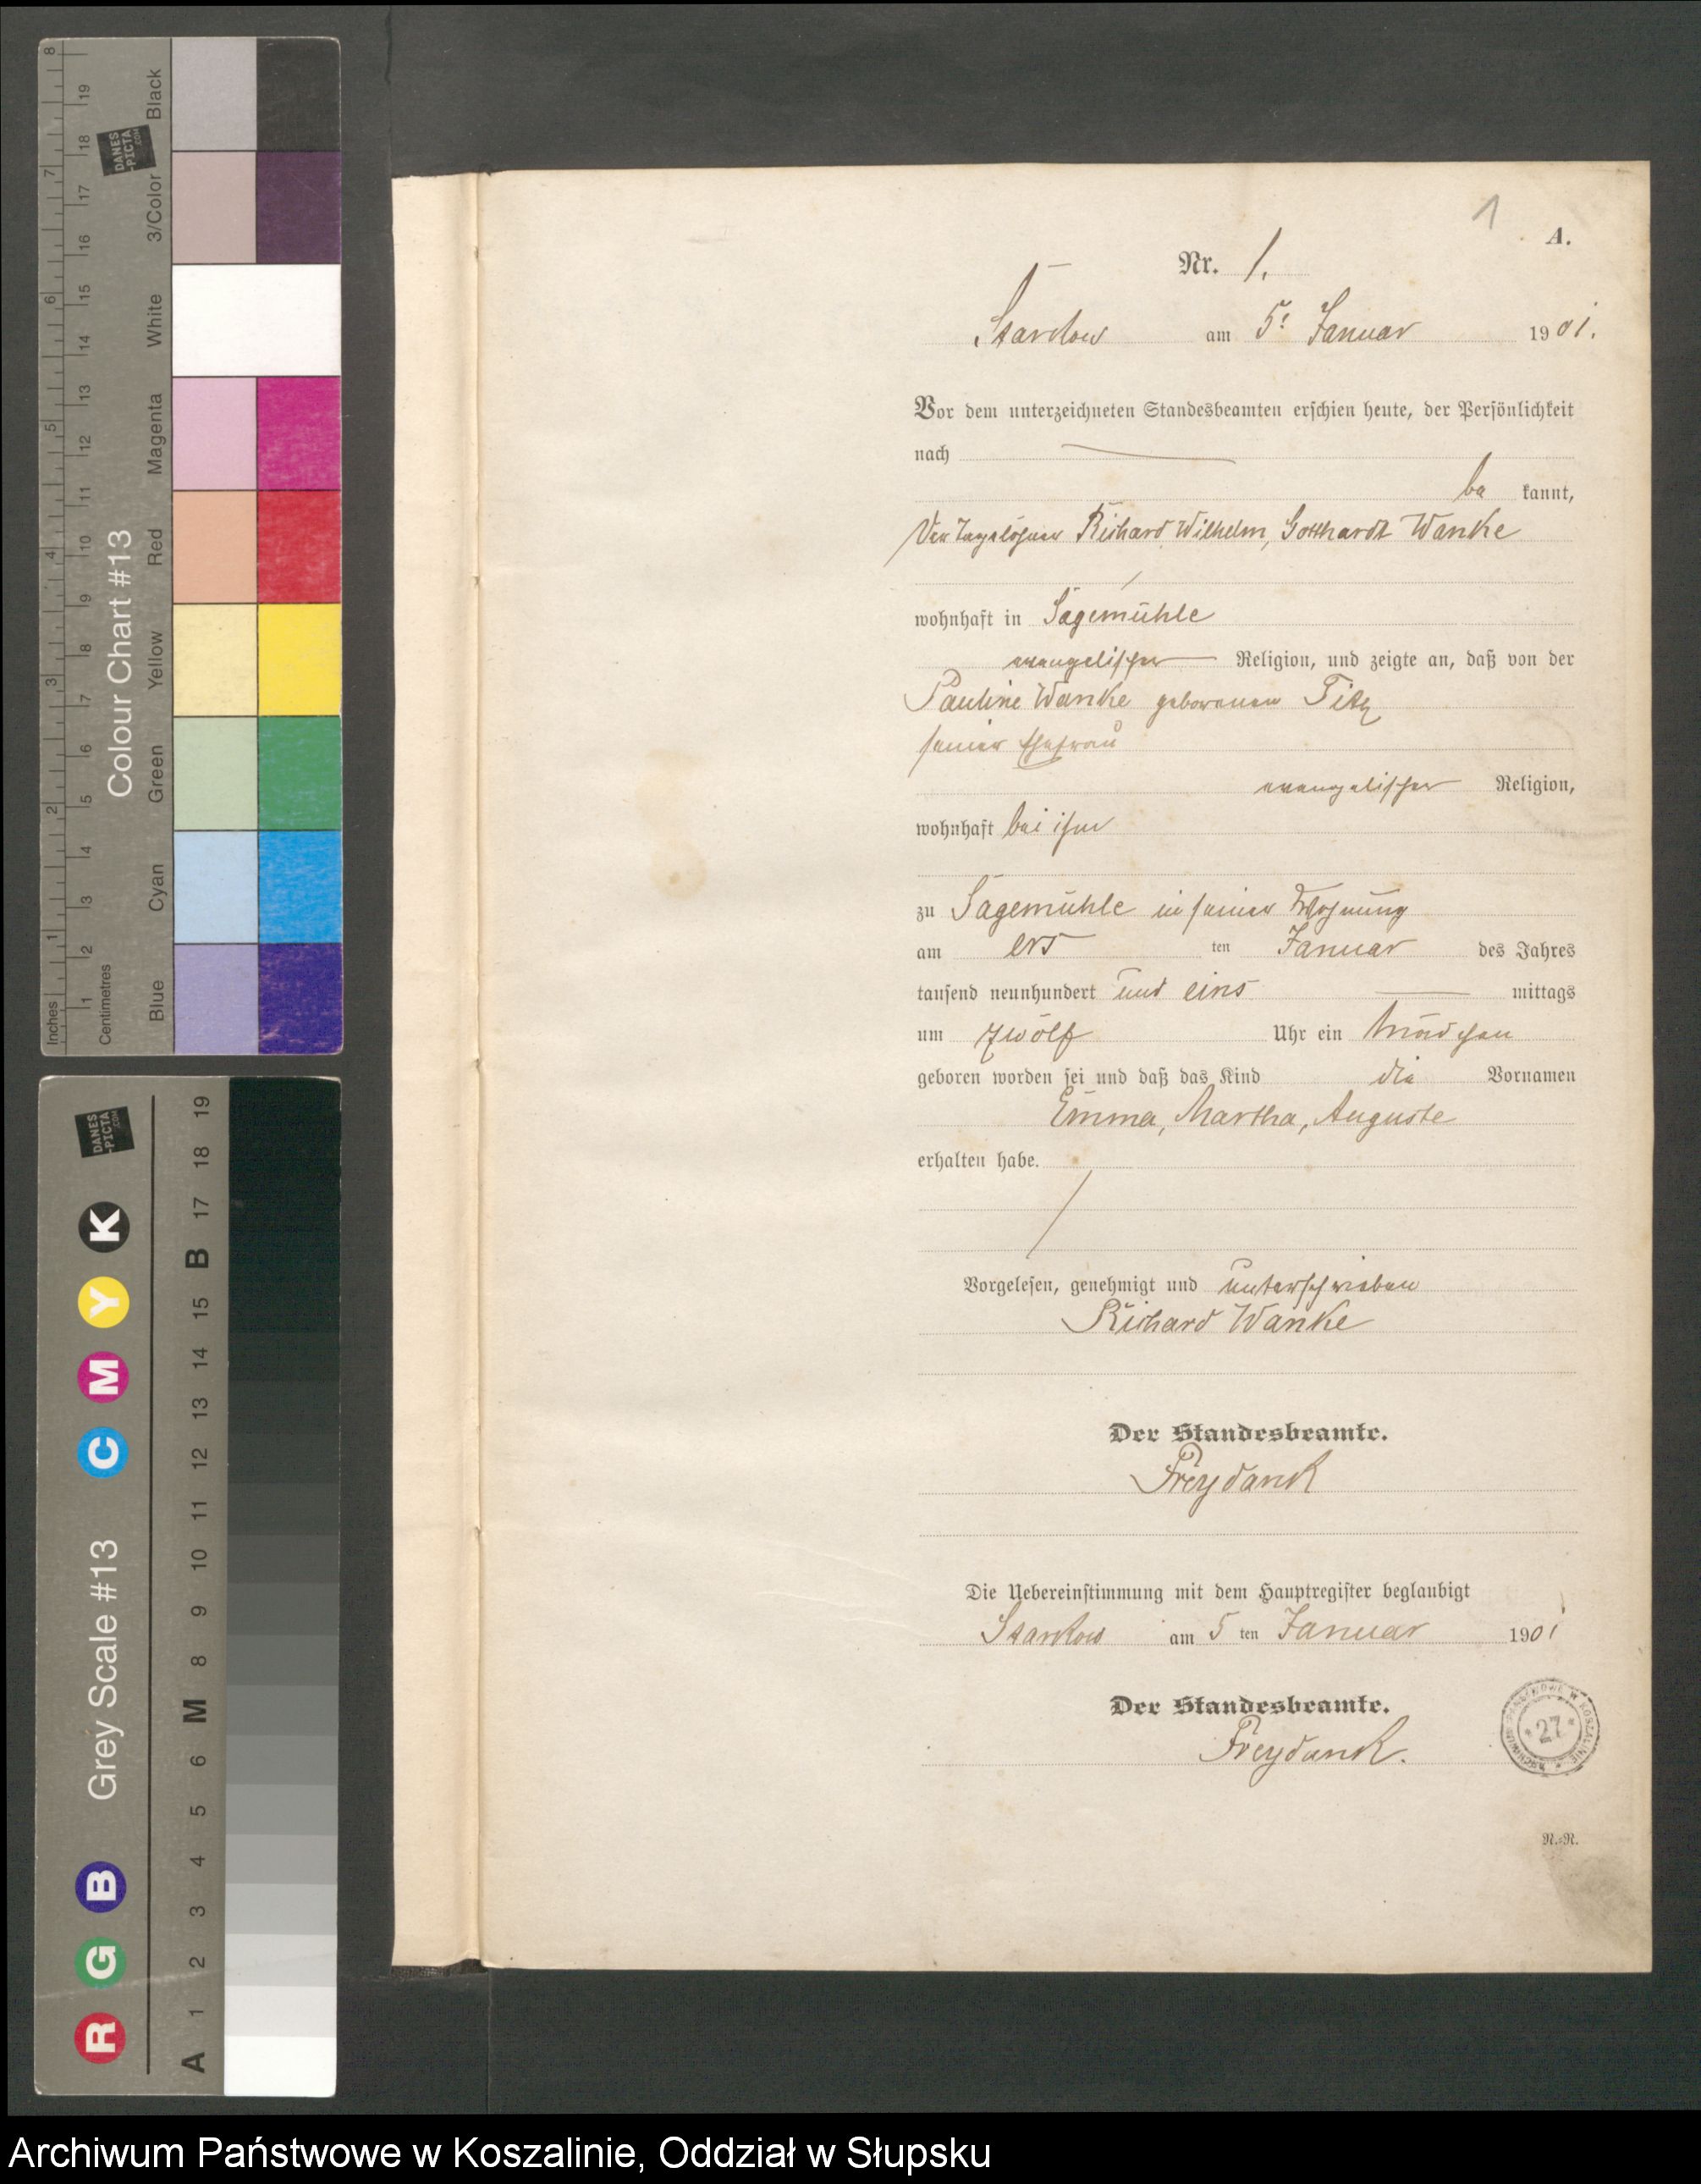 1
A.
Nr. 1.
Starkow am 5t Januar 1901.
Vor dem unterzeichneten Standesbeamten erschien heute, der Persönlichkeit
nach
be kannt,
Der Tagelöhner Richard, Wilhelm, Gotthardt Wanke
wohnhaft in Sägemühle
evangelischer Religion, und zeigte an, daß von der
Pauline Wanke geborenen Titz
seiner Ehefrau
evangelischer Religion,
wohnhaft bei ihm
zu Sägemühle in seiner Wohnung
am ers ten Januar des Jahres
tausend neunhundert und eins mittags
um zwölf Uhr ein Mädchen
geboren worden sei und daß das Kind die Vornamen
Emma, Martha, Auguste
erhalten habe.
Vorgelesen, genehmigt und unterschrieben
Richard Wanke
Der Standesbeamte.
Freydank
Die Uebereinstimmung mit dem Hauptregister beglaubigt
Starkow am 5 ten Januar 1901
Der Standesbeamte.
Freydank.
ARCHIWUM PAŃSTWOWE W KOSZALINIE
* 27 *
N.=N.
Inches 1 2 3 4 5 6 7 8
Centimetres 1 2 3 4 5 6 7 8 9 10 11 12 13 14 15 16 17 18 19
Colour Chart #13
Blue Cyan Green Yellow Red Magenta White 3/Color Black
DANES
-PICTA
.COM
Grey Scale #13
R G B C M Y K
A 1 2 3 4 5 6 M 8 9 10 11 12 13 14 15 B 17 18 19
DANES
-PICTA
.COM
Archiwum Państwowe w Koszalinie, Oddział w Słupsku